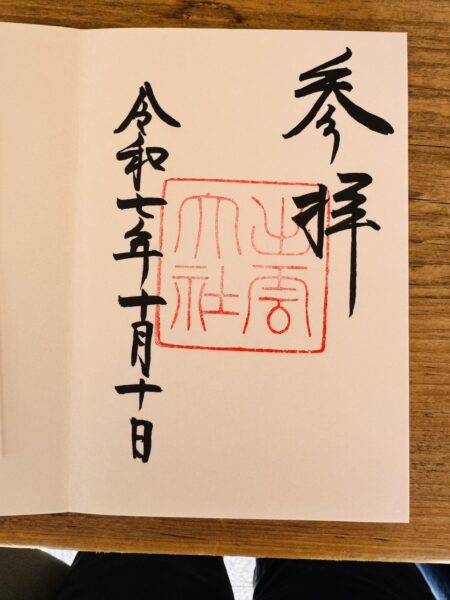 参拝
出雲
大社
令和七年十月十日